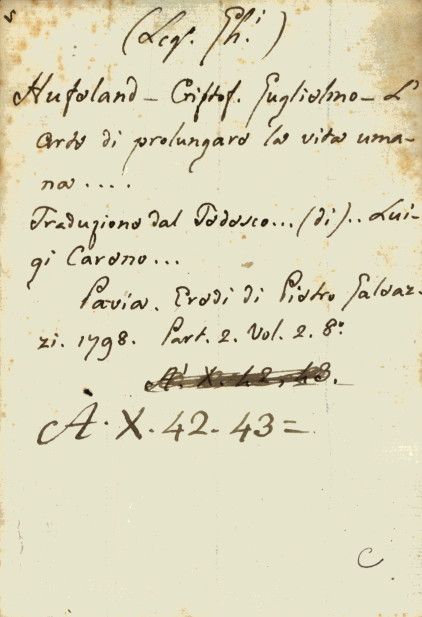 (Leg. Gh.i)
Hufeland - Cristof. Guglielmo - L'
arte di prolungare la vita uma-
na....
Traduzione dal Tedesco... (di).. Lui-
gi Careno...
Pavia. Eredi di Pietro Galeaz-
zi. 1798. Part. 2. Vol. 2. 8.°
A. X. 42. 43.
A. X. 42. 43=
C